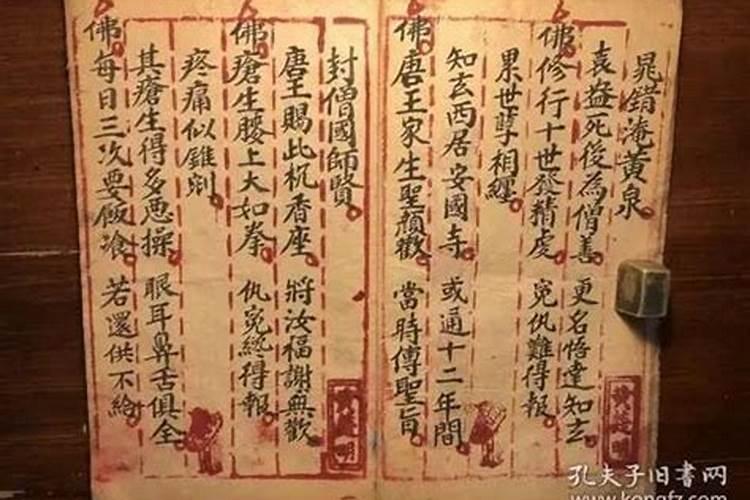 晁錯淹黄泉
袁盎死後為僧善 更名悟達知玄
佛修行十世發精虔 寃仇難得報
累世孽相纏
知玄西居安國寺 或通十二年間
佛唐王家生聖顏歡 當時傳聖旨
封僧國師賢
唐王賜此杌香座 將汝福謝無歡
佛瘡生腰上大如拳 仇寃終得報
疼痛似錐剜
其瘡生得多惡操 眼耳鼻舌俱全
佛每日三次要飯飡 若還供不給
孔夫子旧书网